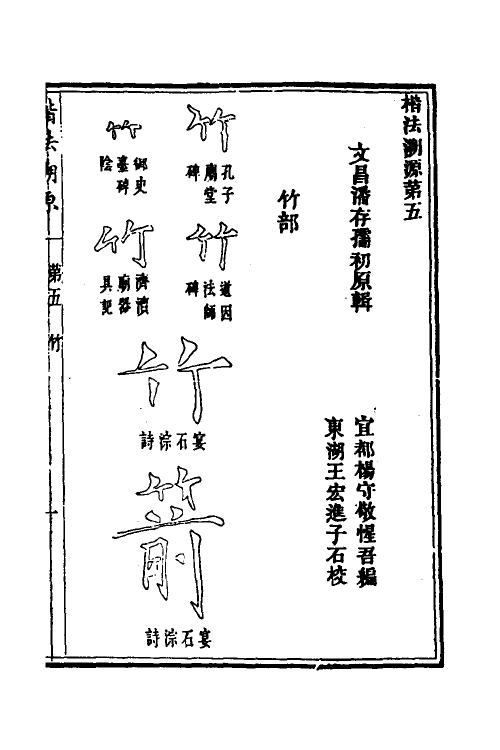 楷法溯源第五
文昌潘存孺初原輯
宜都楊守敬惺吾編
東湖王宏進子石校
竹部
竹
孔子廟堂碑
竹
道因法師碑
竹
御史臺碑陰
竹
濟瀆廟器具記
竹
宴石淙詩
箭
宴石淙詩
楷法溯源
第五
竹
一